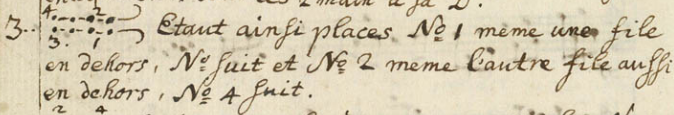 4 2
3.. Etaut ainsi places No 1 meme une file
3. 1
en dehors, No suit et No 2 meme l'autre file aussi
en dehors, No 4 suit.
2 4